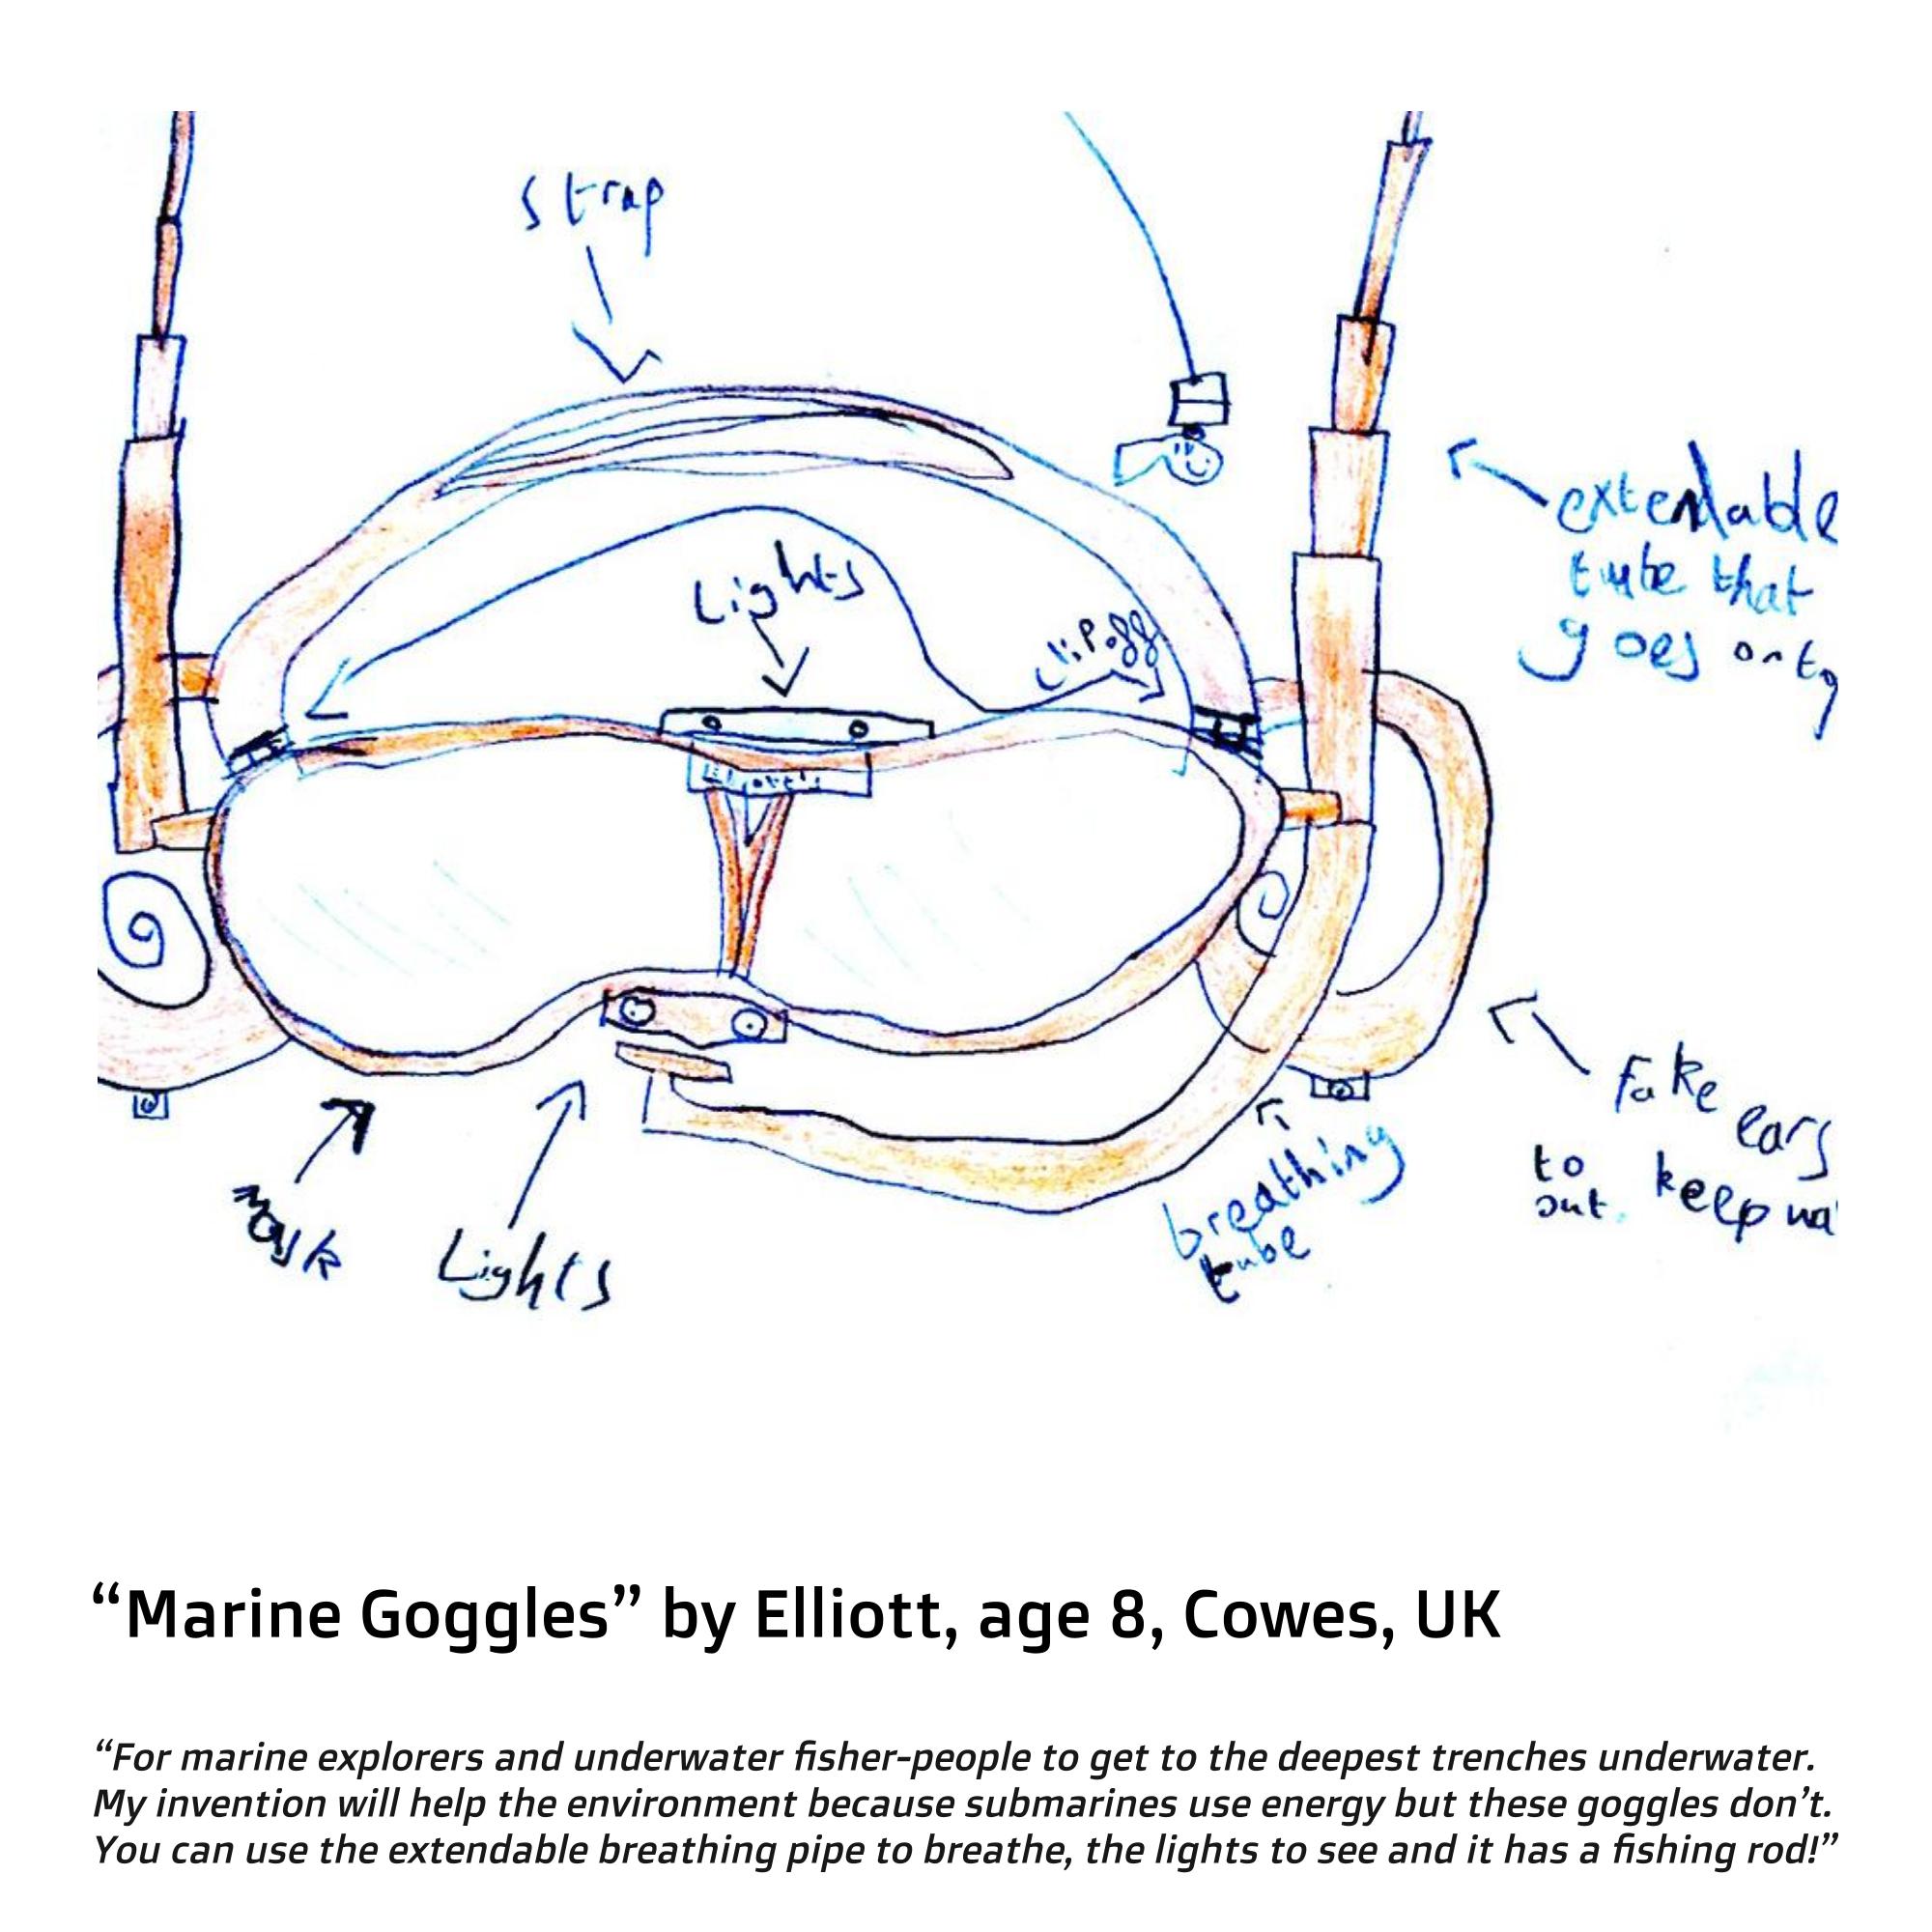 Strap
Lights
clip off
extendable
tube that
goes onto
fake ears
to keep wa
out.
breathing
tube
mask
Lights
“Marine Goggles” by Elliott, age 8, Cowes, UK
“For marine explorers and underwater fisher-people to get to the deepest trenches underwater.
My invention will help the environment because submarines use energy but these goggles don’t.
You can use the extendable breathing pipe to breathe, the lights to see and it has a fishing rod!”